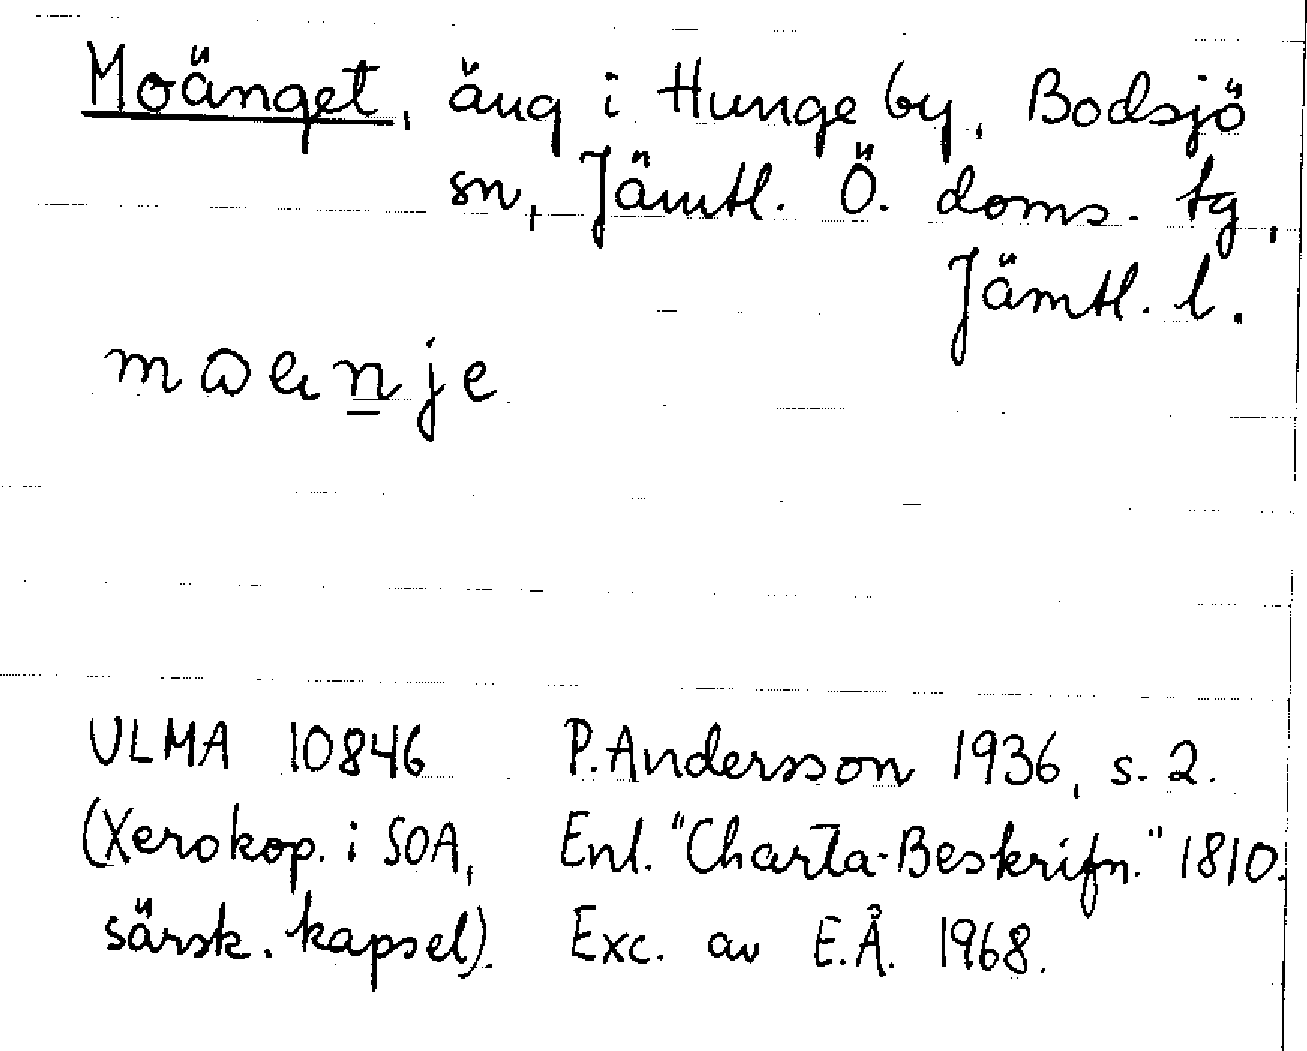 Moänget, äng i Hunge by, Bodsjö
sn, Jämtl. Ö. doms. tg,
Jämtl. l.
ULMA 10846 P. Andersson 1936, s. 2.
(Xerokop. i SOA, Enl. "Charta-Beskrifn." 1810.
särsk. kapsel). Exc. av E.Å. 1968.